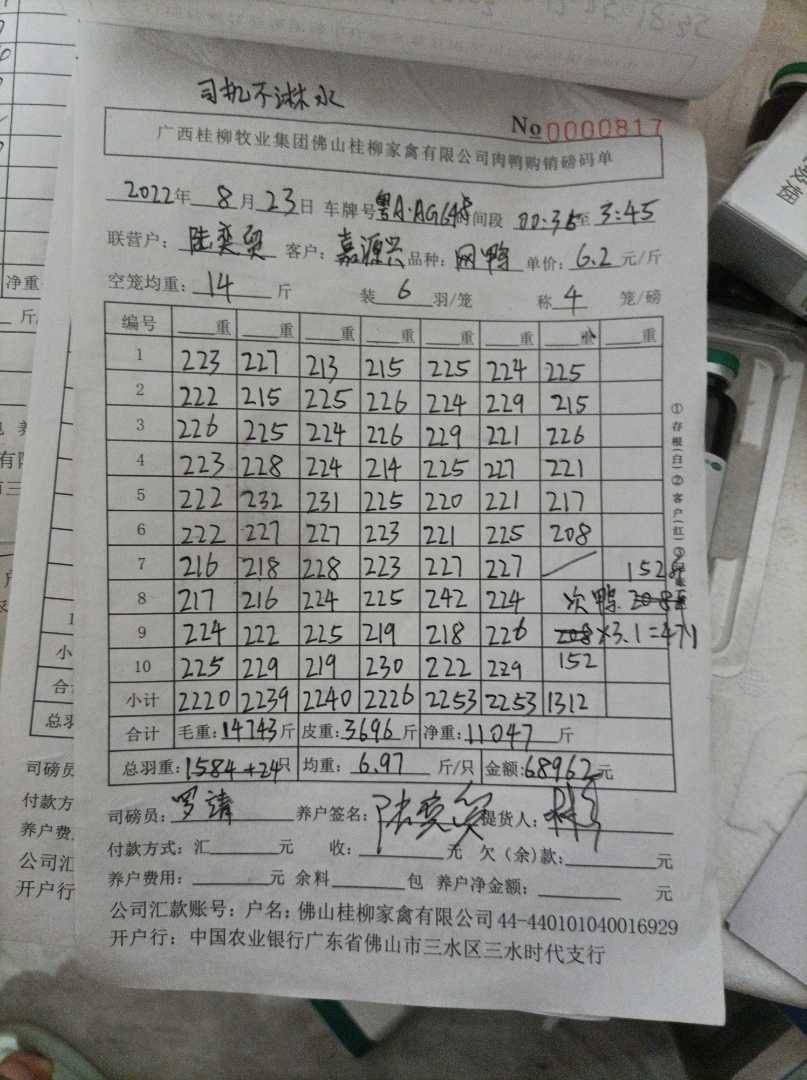 司机不淋水
No 0000817
广西桂柳牧业集团佛山桂柳家禽有限公司肉鸭购销磅码单
2022年 8月 23日 车牌号 粤A·AG64 间段 00:35至 3:45
联营户: 陆奕贸 客户: 嘉源兴 品种: 网鸭 单价: 6.2 元/斤
空笼均重: 14 斤 装 6 羽/笼 称 4 笼/磅
编号 重 重 重 重 重 重 重
1 223 227 213 215 225 224 225
2 222 215 225 226 224 229 215
3 226 225 224 226 229 221 226
4 223 228 224 214 225 227 221
5 222 232 231 225 220 221 217
6 222 227 227 223 221 225 208
7 216 218 228 223 227 227 / 152斤
8 217 216 224 225 242 224 次鸭
9 224 222 225 219 218 226 208 ×3.1=471
10 225 229 219 230 222 229 152
小计 2220 2239 2240 2226 2253 2253 1312
合计 毛重: 14743斤 皮重: 3696斤 净重: 11047 斤
总羽重: 1584+24只 均重: 6.97 斤/只 金额: 68962元
司磅员: 罗靖 养户签名: 提货人:
付款方式: 汇 元 收: 元 欠(余)款: 元
养户费用: 元 余料 包 养户净金额: 元
公司汇款账号: 户名: 佛山桂柳家禽有限公司 44-440101040016929
开户行: 中国农业银行广东省佛山市三水区三水时代支行
①存根(白)②客户(红)③
净重
斤
小
合
总羽
司磅员
付款方
养户费
公司汇
开户行